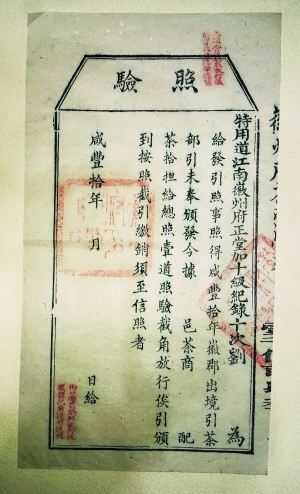 照驗
特用道江南徽州府正堂加十級紀錄十次劉 為
給發引照事照得咸豐拾年徽郡出境引茶
部引未奉頒發今據 邑茶商 配
茶拾担給總照壹道照驗截角放行俟引頒
到按照截引繳銷須至信照者
咸豐拾年 月 日給